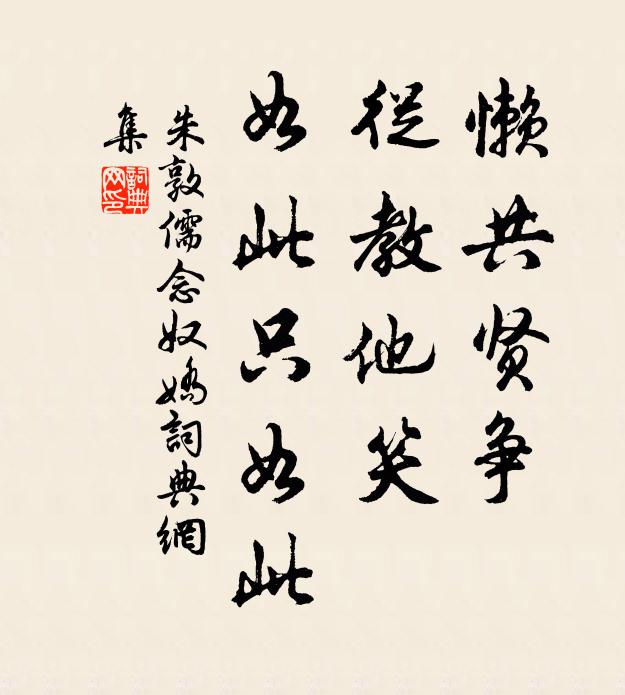 懒共贤争
従教他笑
如此只如此
朱敦儒念奴嬌詞典網
集
詞典
网印